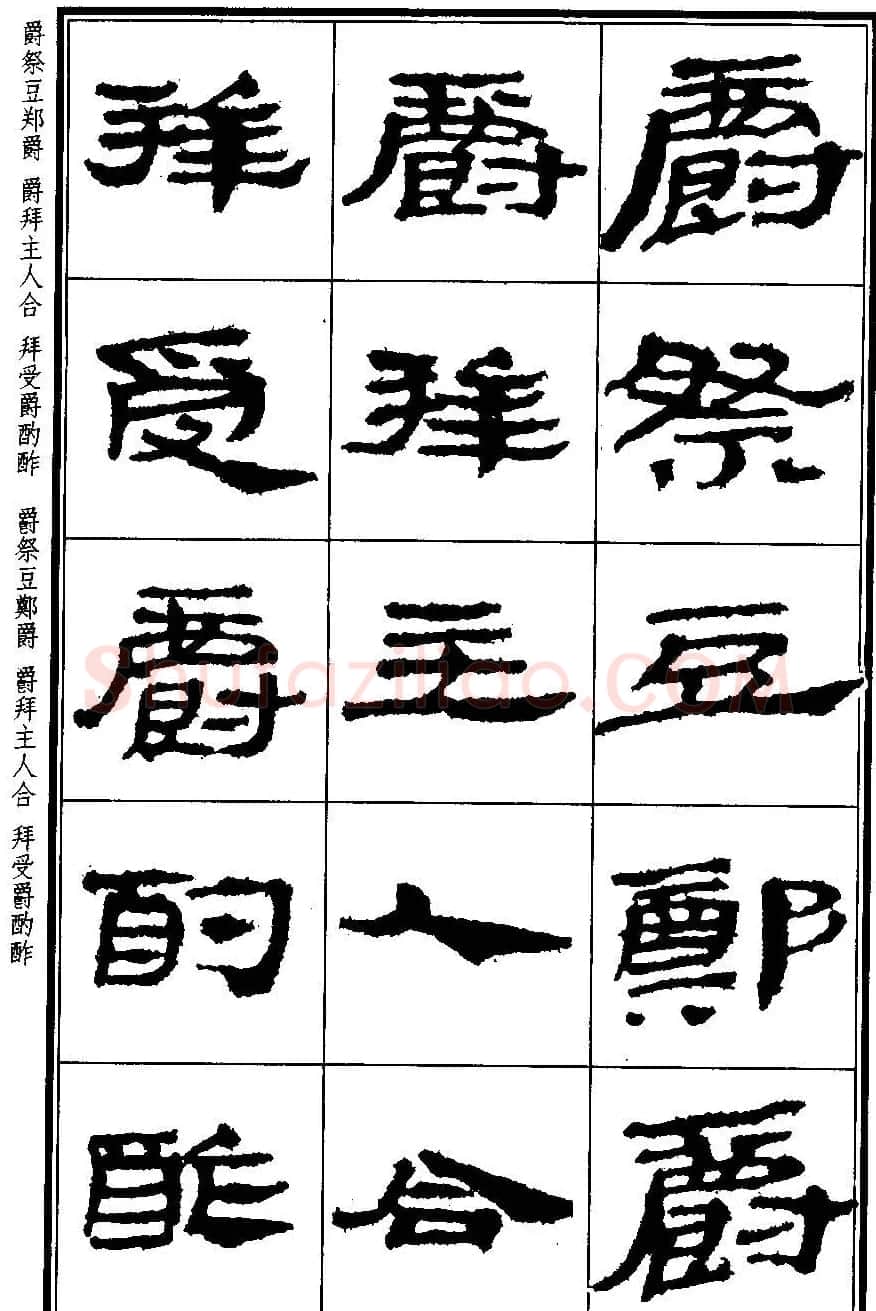 爵祭豆鄭爵
爵拜主人合
拜受爵酌酢
爵祭豆郑爵 爵拜主人合 拜受爵酌酢 爵祭豆鄭爵 爵拜主人合 拜受爵酌酢
Shufaziliao.COM